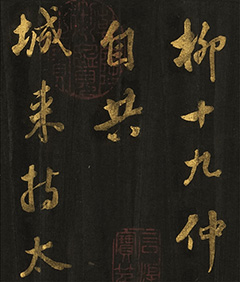 柳十九仲
自共
城来持太